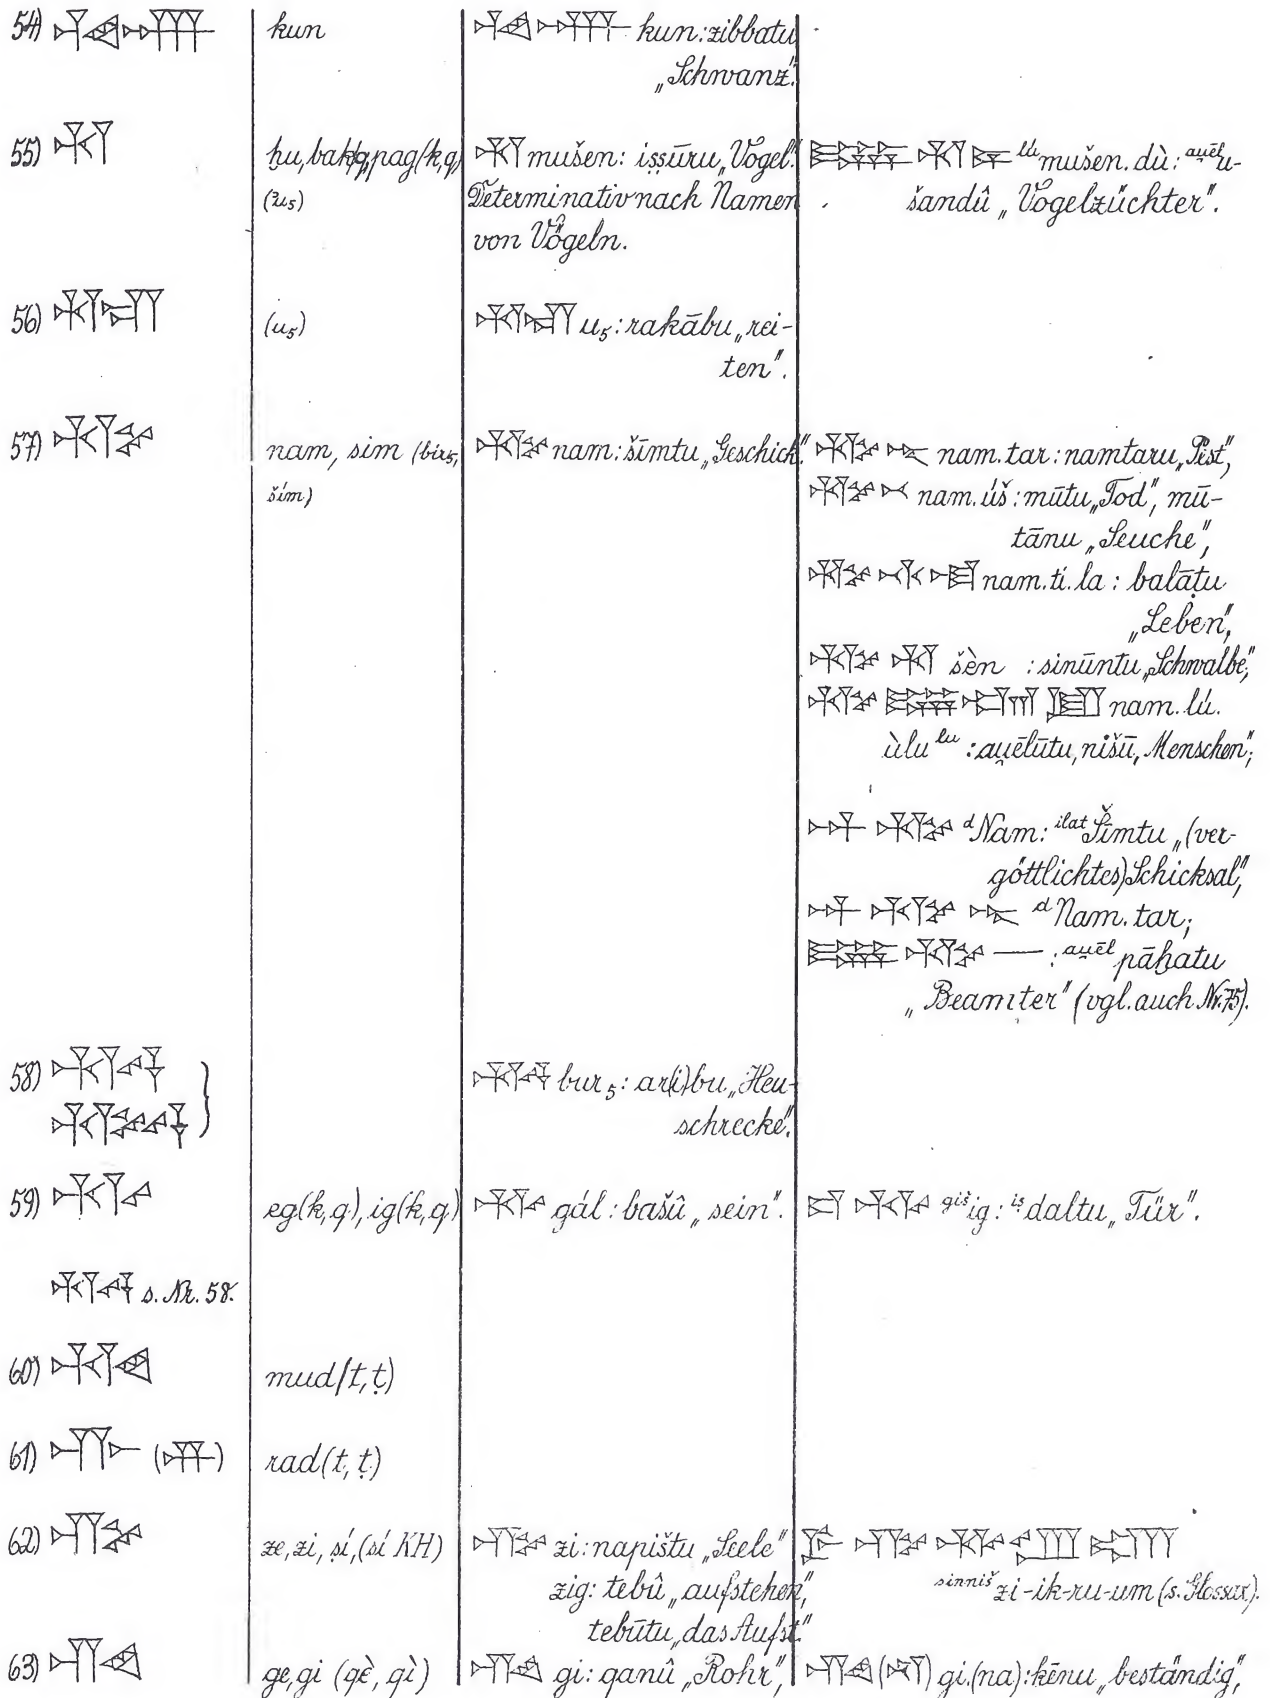 54) 𒆲 kun 𒆲 kun: zibbatu
„Schwanz".
55) 𒄷 ḫu, bak/q, pag(k,q) 𒄷 mušen: iṣṣūru „Vogel". 𒇽 𒄷 𒆕 lú mušen.dù: au̯ēl u-
(žu₅) Determinativ nach Namen šandû „Vogelzüchter".
von Vögeln.
56) 𒄷𒋛 (u₅) 𒄷𒋛 u₅: rakābu „rei-
ten".
57) 𒉆 nam, sim (bir₅, 𒉆 nam: šīmtu „Geschick". 𒉆 𒋻 nam.tar: namtaru „Pest",
ším) 𒉆 𒁁 nam.úš: mūtu „Tod", mū-
tānu „Seuche",
𒉆 𒋾 𒆷 nam.ti.la: balāṭu
„Leben",
𒉆 𒄷 šèn : sinūntu „Schwalbe",
𒉆 𒇽 𒌋𒈜 𒇻 nam.lú.
ùlu lu : au̯ēlūtu, nišū „Menschen";
𒀭 𒉆 d Nam: ilat Šīmtu „(ver-
göttlichtes) Schicksal",
𒀭 𒉆 𒋻 d Nam.tar;
𒇽 𒉆 — : au̯ēl pāḫatu
„Beamter" (vgl. auch Nr. 75).
58) 𒄷 } 𒄷 bur₅: ar(i)bu „Heu-
schrecke".
59) 𒅅 eg(k,q), ig(k,q) 𒅅 gál: bašû „sein". 𒄑 𒅅 giš ig: iṣ daltu „Tür".
s. Nr. 58.
60) 𒄷𒄭 mud(t,ṭ)
61) 𒋥 rad(t,ṭ)
62) 𒍣 ze, zi, ṣí, (sí KH) 𒍣 zi: napištu „Seele" 𒊩 𒍣 𒅅 𒊒 𒌝
zig: tebû „aufstehen", sinniš zi-ik-ru-um (s. Glossar).
tebūtu „das Aufst."
63) 𒄀 ge, gi (qè, qì) 𒄀 gi: qanû „Rohr", 𒄀(𒈾) gi.(na): kēnu „beständig",